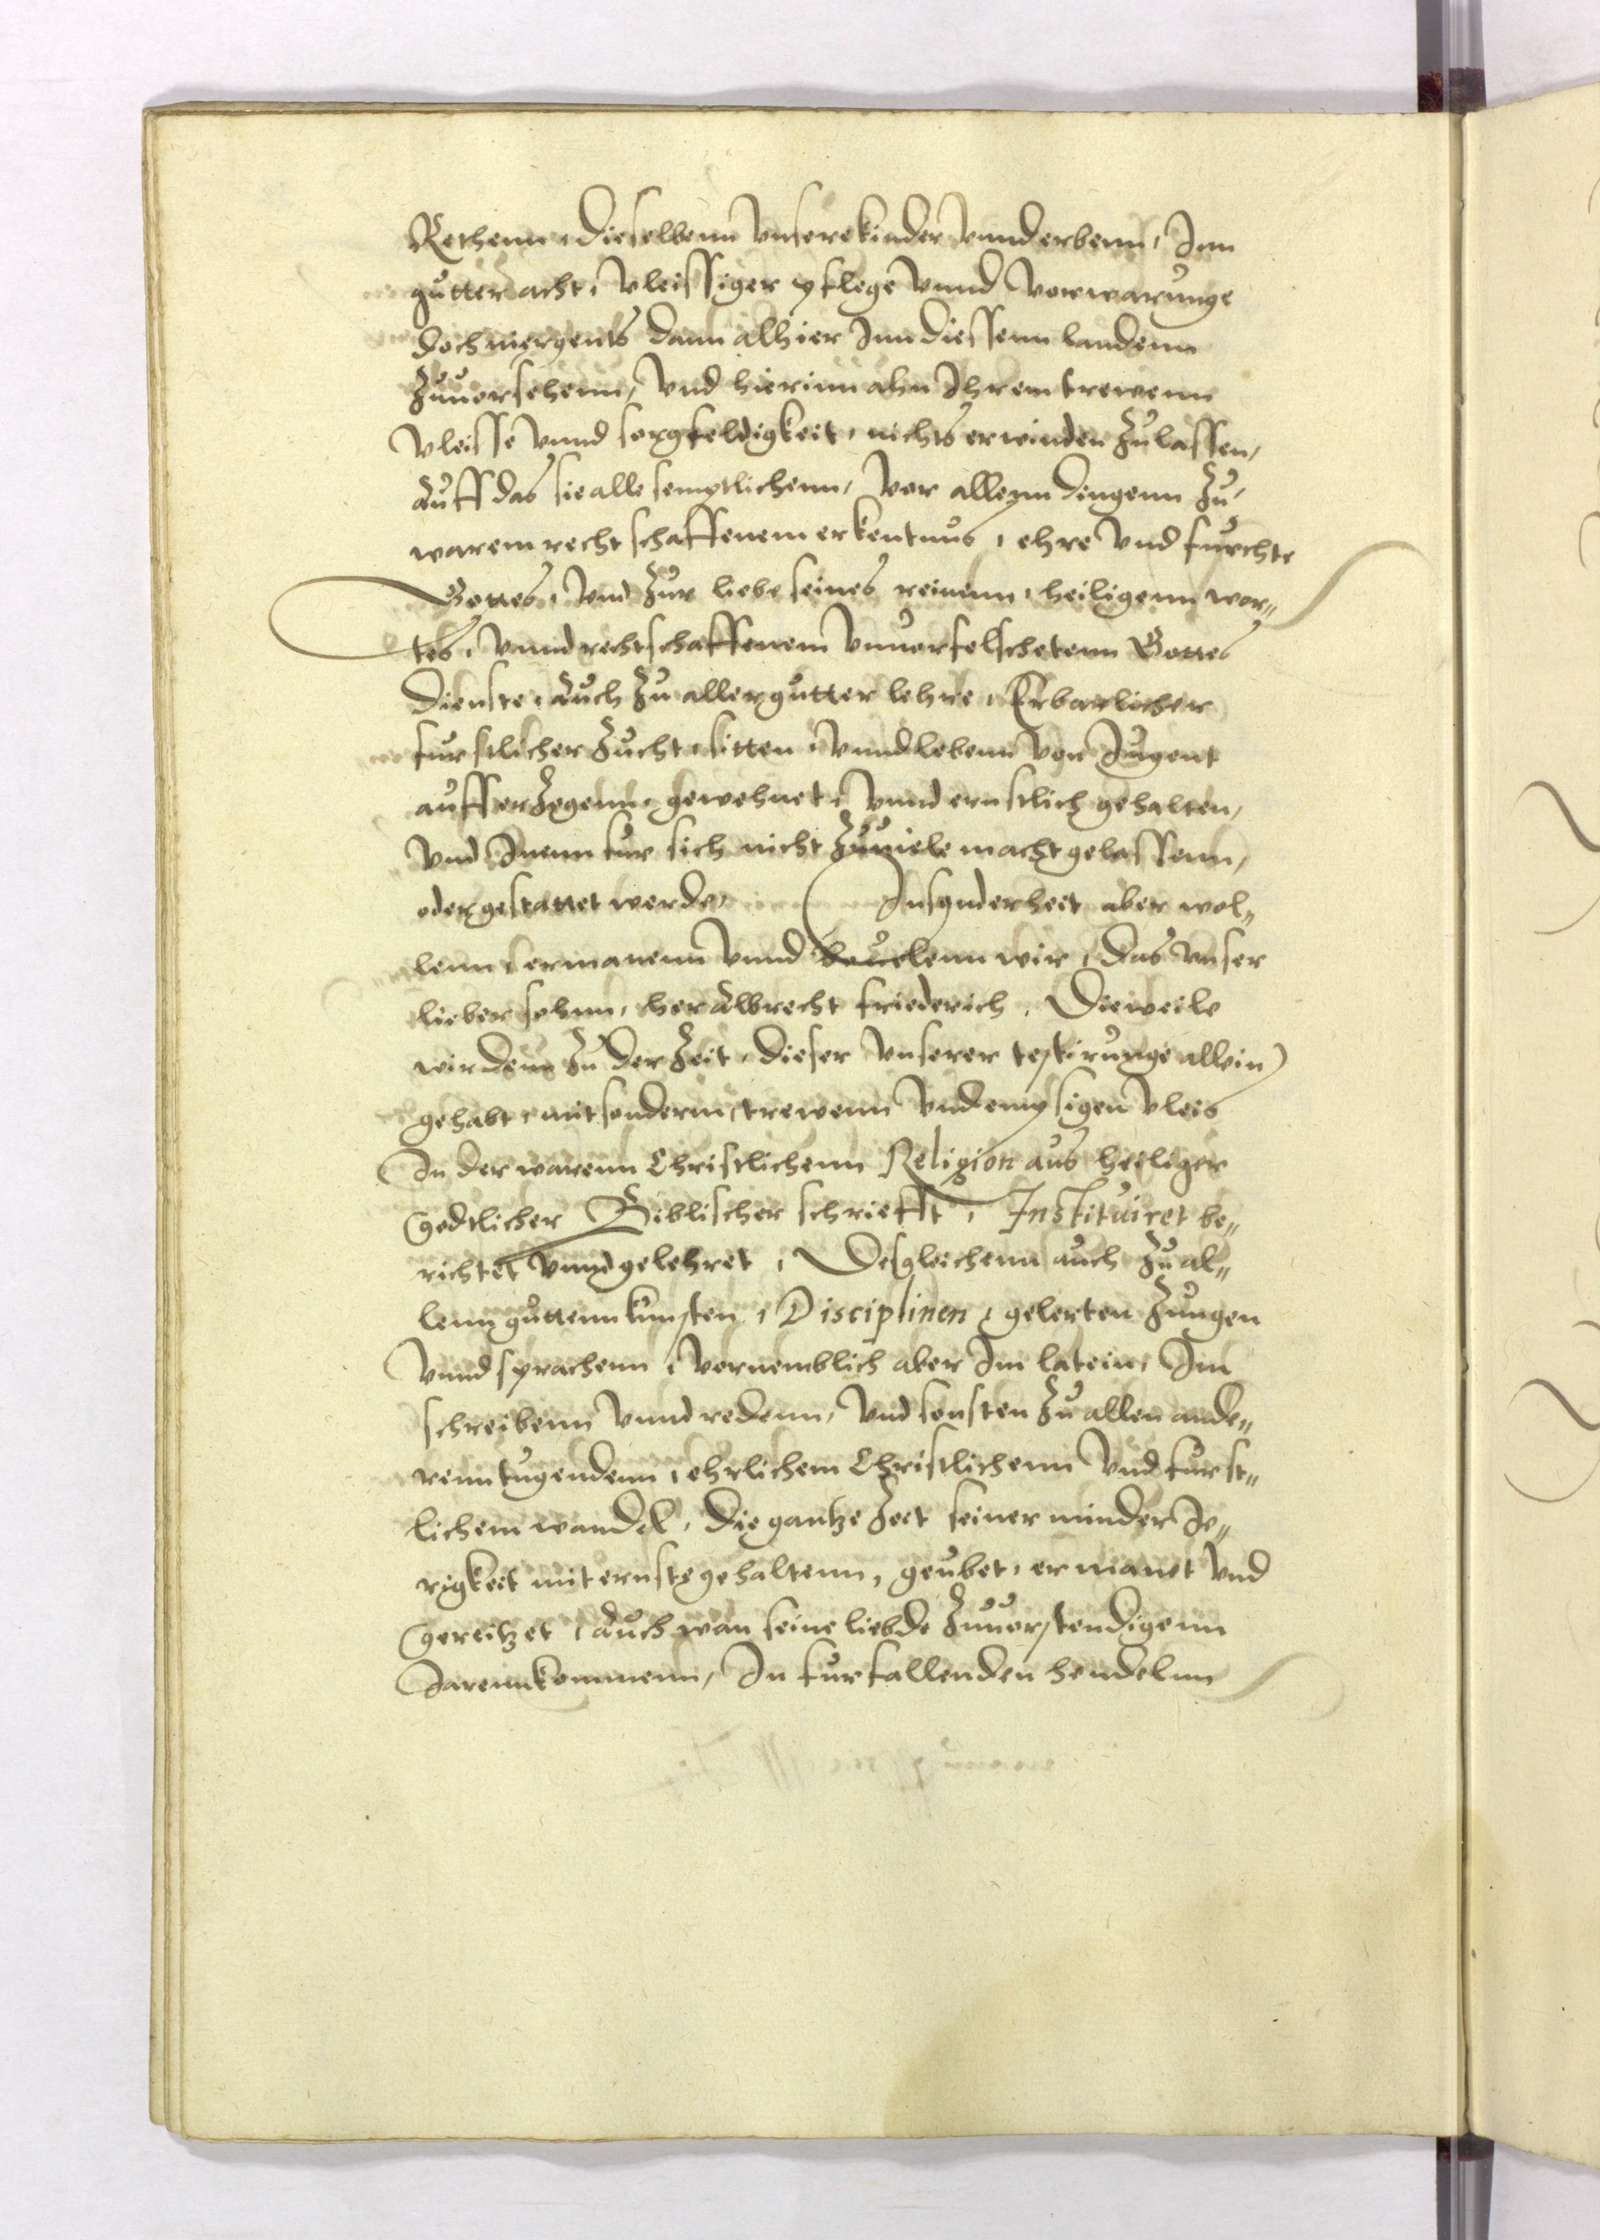 Rethenn, dieselbenn vnsere kinder vnnd erbenn, Inn
gutter acht, vleissiger pflege vnnd vorwarunge
doch niergents dann alhier Inn diessenn landenn
zuuorsehenn, vnd hierinn ahn Ihrem trewenn
vleisse vnnd sorgfeldigkeit, nichts erwinden zulassen,
auff das sie alle semptlichenn, vor allenn dingenn zu
warem rechtschaffenem erkentnus, ehre vnd furchte
Gottes, vnd zur liebe seines reinenn, heiligenn wor„
tes, vnnd rechtschaffenem vnuorfelschetenn Gottes
dienste, auch zu aller gutter lehre, Erbarlicher
furstlicher zucht, sitten, vnnd lebenn von Jugent
aufferzogenn, gewehnet, vnnd ernstlich gehalten,
vnd Inenn fur sich nicht zuuiele macht gelassenn,
oder gestattet werde, Insonderheit aber wol„
lenn, ermanenn vnnd beuelenn wir, das vnser
lieber sohnn, her Albrecht Friederich, Dieweile
wir denn zu der zeit, dieser vnserer testirunge allein
gehabt, mit sonderm, trewenn vnd empsigen vleis
In der warenn Christlichenn Religion aus heiliger
Godtlicher Biblischer schriefft, Instituiret be„
richtet vnnd gelehret, Desgleichenn auch zu al„
lenn guttenn kunsten, Disciplinen, gelerten zungen
vnnd sprachenn, vornemblich aber Im latein, Im
schreibenn vnnd redenn, vnd sonsten zu allen ande„
renn tugendenn, ehrlichem Christlichenn vnd furst„
lichem wandel, die gantze zeit seiner minder Je„
rigkeit mit ernste gehaltenn, geubet, ermanet vnd
gereitzet, auch wan seine liebde zuuorstendigenn
Jarenn kommenn, In furfallenden hendelnn